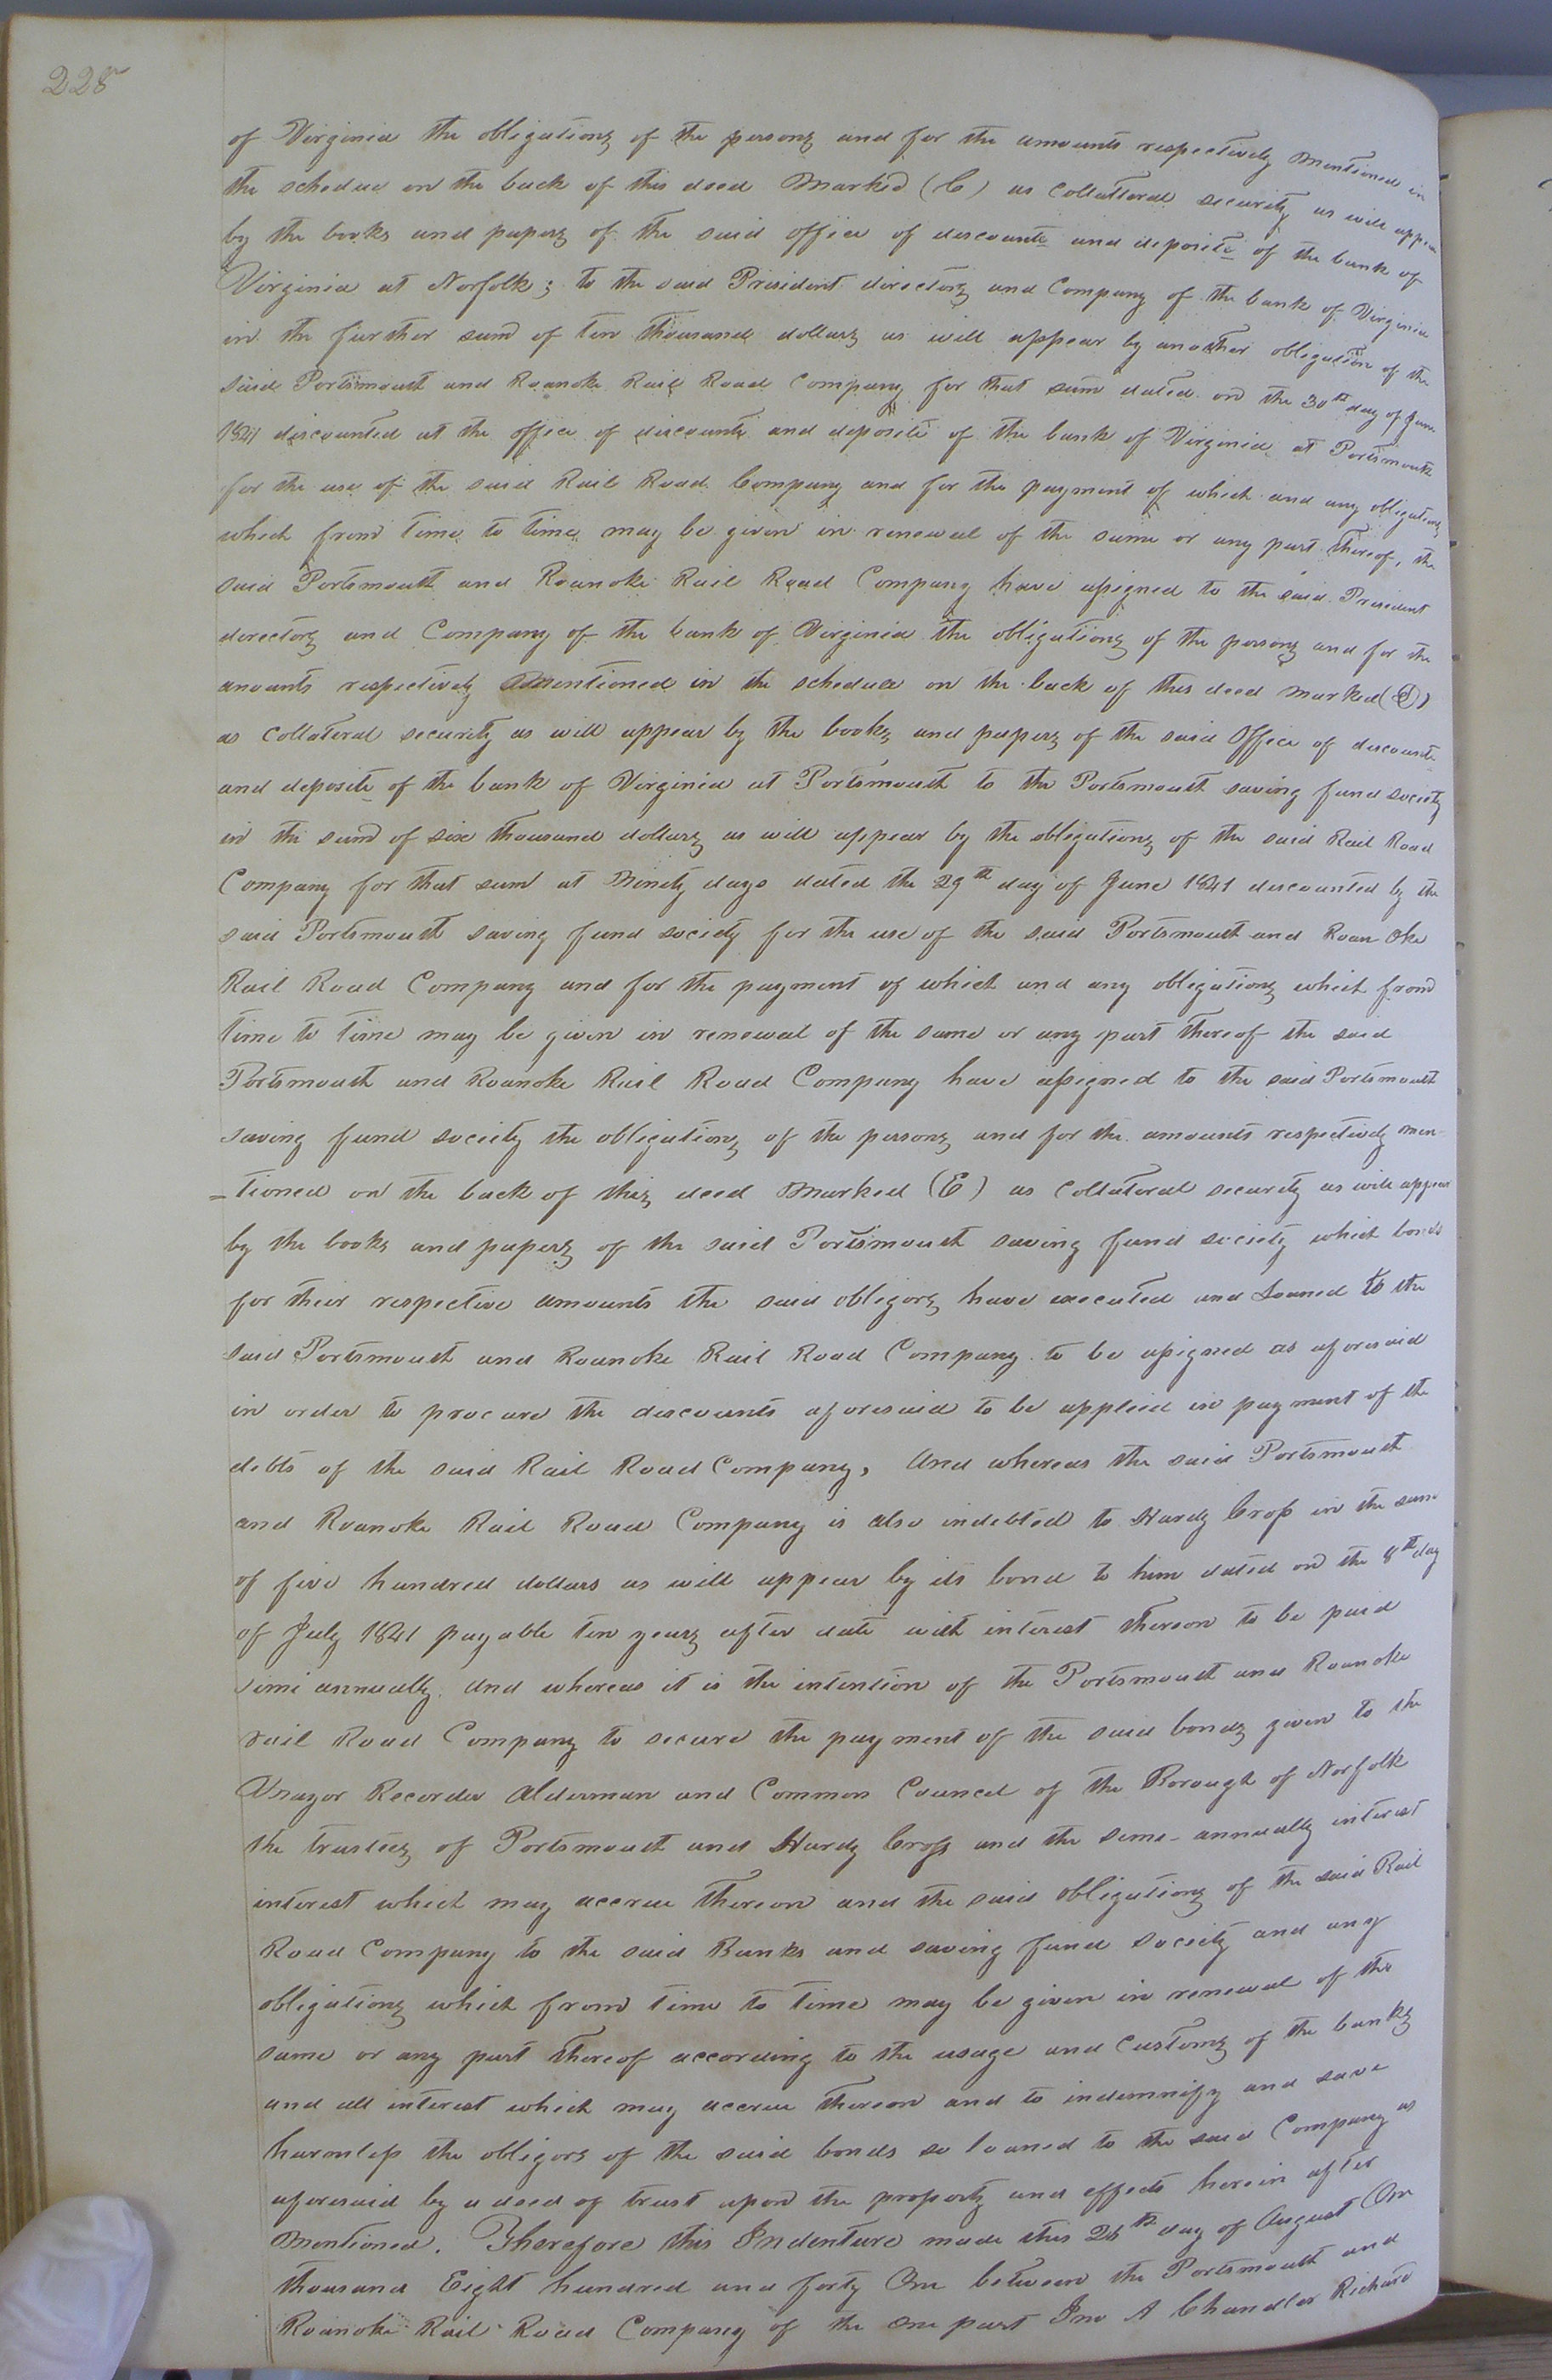 228
of Virginia the obligations of the persons and for the amounts respectively mentioned in
the schedue on the back of this deed Marked (C) as Collatteral security as will appear
by the books and papers of the said office of discounte and deposite of the bank of
Virginia at Norfolk; to the said President directors and Company of the bank of Virginia
in the further sum of ten thousand dollars as will appear by another obligation of the
said Portsmouth and Roanoke Rail Road Company for that sum dated on the 30th day of June
1841 discounted at the office of discounte and deposite of the bank of Virginia at Portsmouth
for the use of the said Rail Road Company and for the payment of which and any obligations
which from time to time may be given in renewal of the same or any part thereof, the
said Portsmouth and Roanoke Rail Road Company have assigned to the said President
directors and Company of the bank of Virginia the obligations of the persons and for the
amounts respectively mentioned in the schedule on the back of this deed marked (D)
as Collateral security as will appear by the books and papers of the said Office of discounte
and deposite of the bank of Virginia at Portsmouth to the Portsmouth saving fund society
in the sum of six thousand dollars as will appear by the obligations of the said Rail Road
Company for that sum at Ninety days dated the 29th day of June 1841 discounted by the
said Portsmouth saving fund society for the use of the said Portsmouth and Roan oke
Rail Road Company and for the payment of which and any obligations which from
time to time may be given in renewal of the same or any part thereof the said
Portsmouth and Roanoke Rail Road Company have assigned to the said Portsmouth
saving fund society the obligations of the persons and for the amounts respectively men-
=tioned on the back of this deed Marked (E) as Collateral security as will appear
by the books and papers of the said Portsmouth saving fund society which bonds
for their respective amounts the said obligors have executed and Loaned to the
said Portsmouth and Roanoke Rail Road Company to be assigned as aforesaid
in order to procure the discounts aforesaid to be applied in payment of the
debts of the said Rail Road Company, And whereas the said Portsmouth
and Roanoke Rail Road Company is also indebted to Hardy Cross in the sum
of five hundred dollars as will appear by its bond to him dated on the 8th day
of July 1841 payable ten years after date with interest thereon to be paid
semi annually. And whereas it is the intention of the Portsmouth and Roanoke
rail Road Company to secure the payment of the said bonds given to the
Mayor Recorder Alderman and Common Council of the Borough of Norfolk
the trustees of Portsmouth and Hardy Cross and the seme-annually interest
interest which may accrue thereon and the said obligations of the said Rail
Road Company to the said Banks and saving fund society and any
obligations which from time to time may be given in renewal of the
same or any part thereof according to the usage and customs of the banks
and all interest which may accrue thereon and to indemnify and save
harmless the obligors of the said bonds so loaned to the said Company as
aforesaid by a deed of trust upon the property and effects herein after
mentioned. Therefore this Indenture made this 26th day of August One
thousand Eight hundred and forty One between the Portsmouth and
Roanoke Rail Road Company of the one part Jno A Chandler Richard